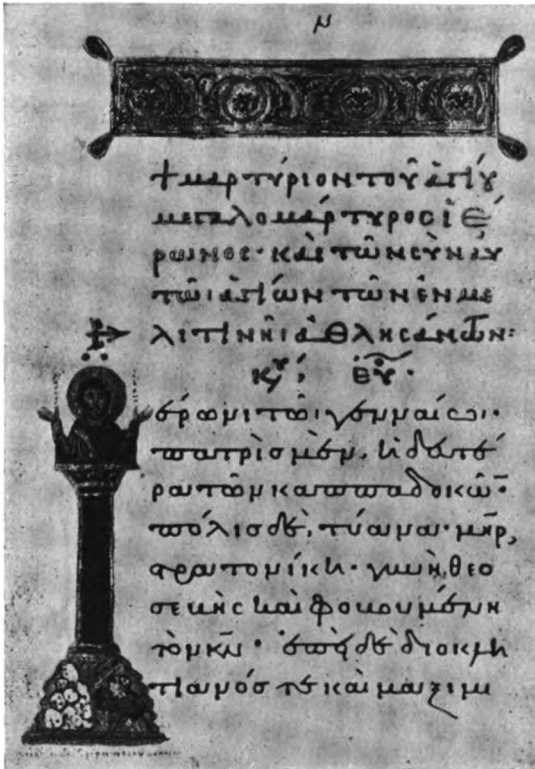 μ
+ μαρτύριον τοῦ ἁγίου
μεγαλομάρτυρος ἱέ
ρωνος· καὶ τῶν σὺν αὐ
τῶι ἁγίων τῶν ἐν με
λιτινῆι ἀθλησάντων:
ἐρωνι τῶι γενναίωι·
πατρὶς μὲν, ἡ δευτέ
ρα τῶν καππαδοκῶν·
πόλις δὲ, τύανα· μηρ,
στρατονίκη· γυνὴ θεο
σεβὴς καὶ φοβουμένη
τὸν κν· ἐπεὶ δὲ διοκλη
τιανός τε καὶ μαξιμι